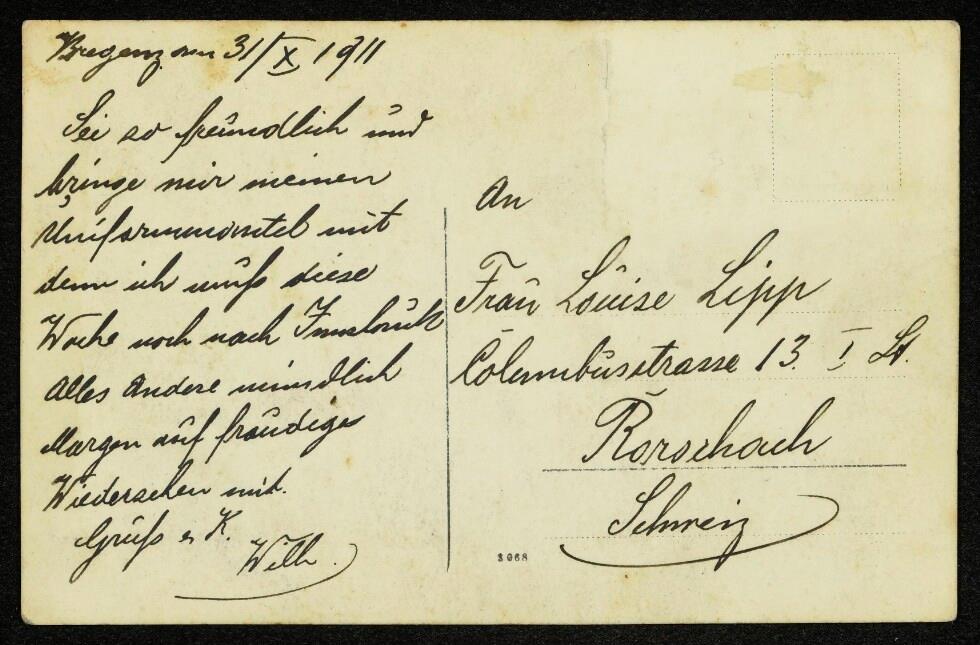 Bregenz am 31/X 1911
Sei so freundlich und
bringe mir meinen
Uniformmantel mit
denn ich muß diese
Woche noch nach Innsbruk
Alles Andere mündlich
Morgen auf freudiges
Wiedersehen mit.
Gruß u K.
Wilh.
An
Frau Louise Lipp
Columbusstrasse 13. I St.
Rorschach
Schweiz
3068